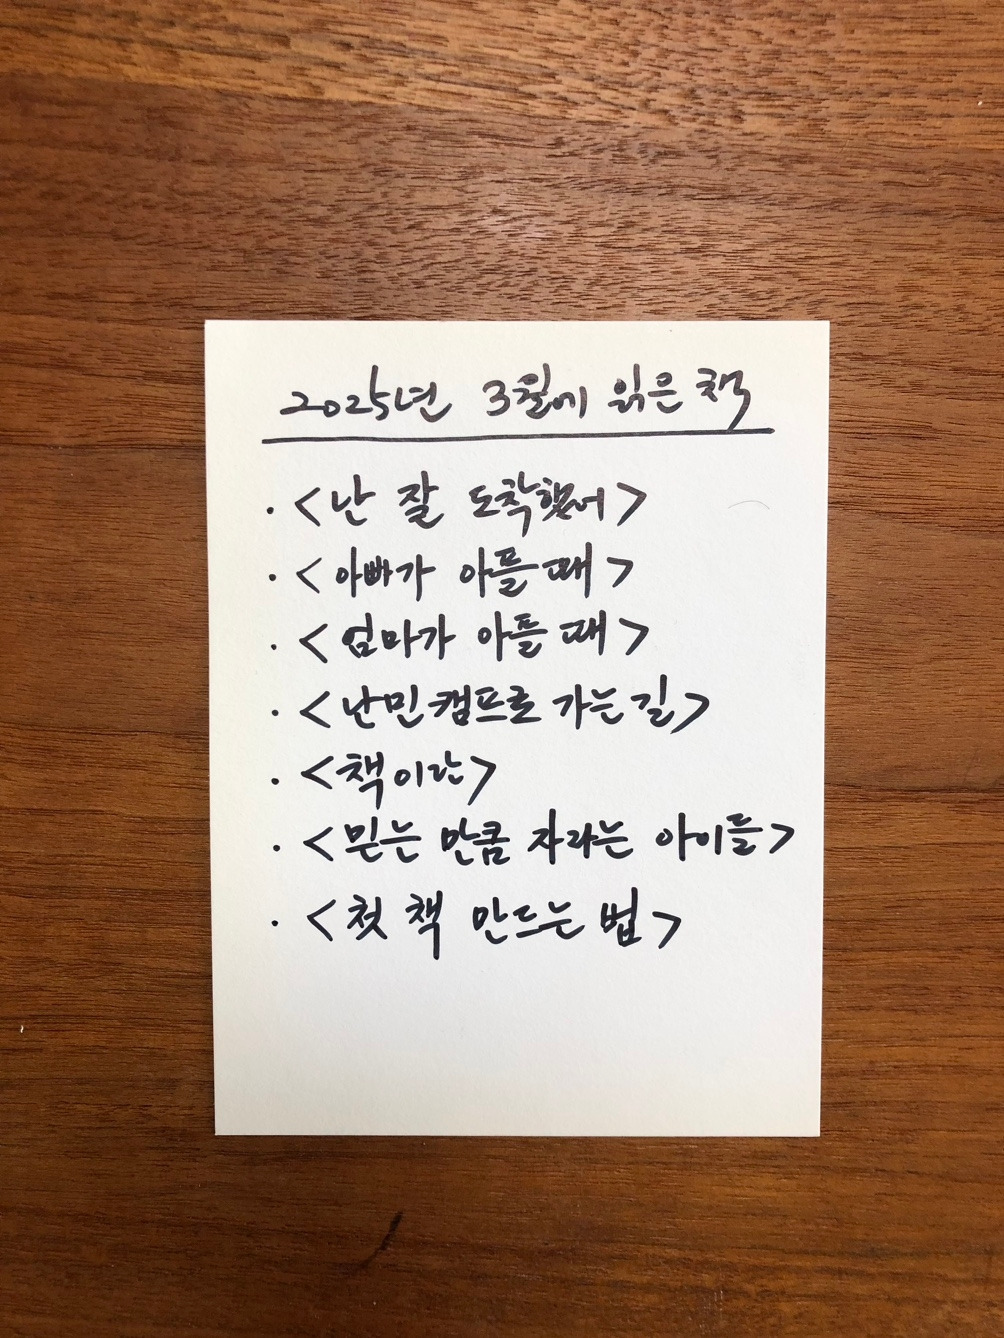 2025년 3월에 읽은 책
· <난 잘 도착했어>
· <아빠가 아플 때>
· <엄마가 아플 때>
· <난민캠프로 가는 길>
· <책이란>
· <믿는 만큼 자라는 아이들>
· <첫 책 만드는 법>